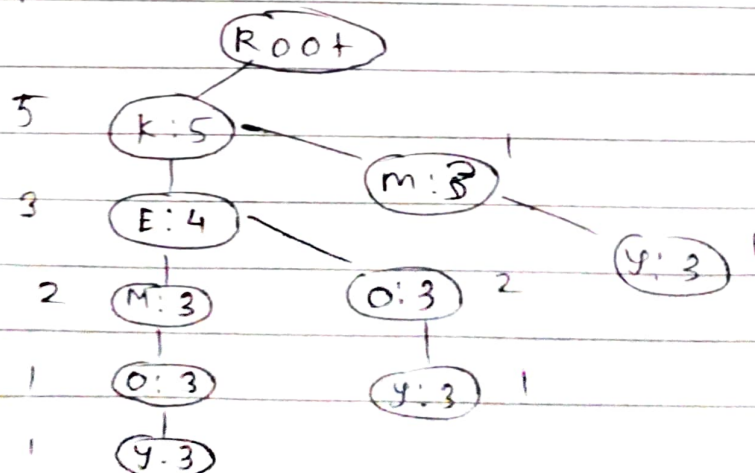 Root
5 K:5
M:3 1
3 E:4
Y:3 1
2 M:3 O:3 2
1 O:3 Y:3 1
1 Y:3